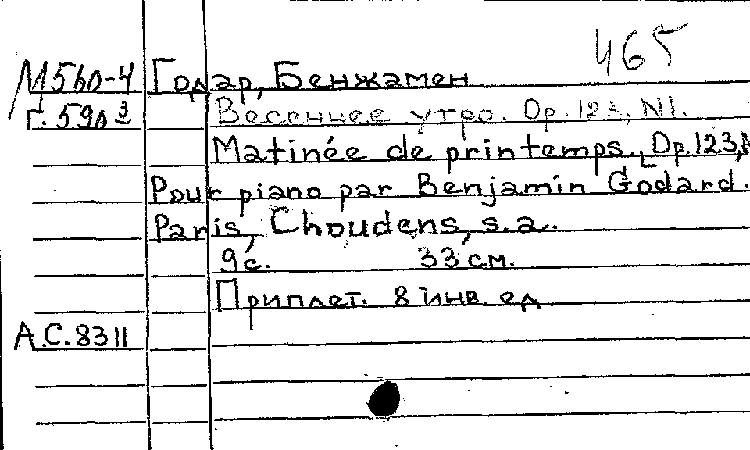 465
М560-4 Годар, Бенжамен
Г. 590 Весеннее утро. Op. 123, N1.
Matinée de printemps. Op. 123,
Pour piano par Benjamin Godard.
Paris, Choudens, s.a.
9 с. 33 см.
Приплет. 8 инв. ед
А.С. 8311